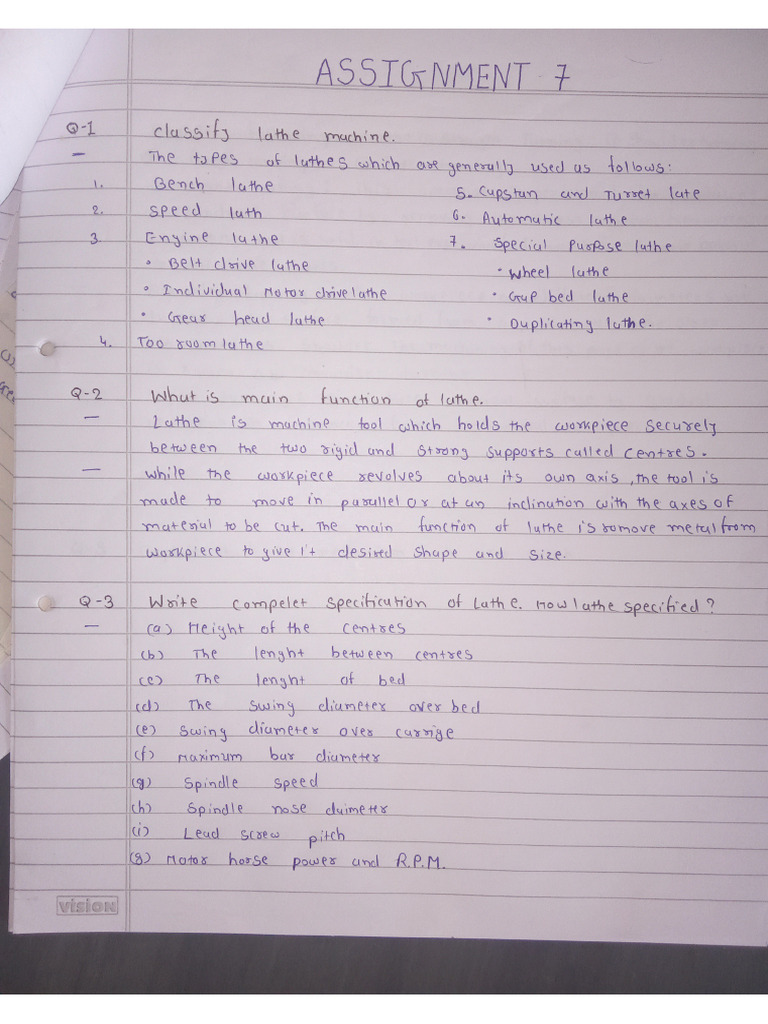 ASSIGNMENT 7
Q-1 Classify lathe machine.
— The types of lathes which are generally used as follows:
1. Bench lathe
2. Speed lath
3. Engine lathe
• Belt drive lathe
• Individual Motor drive lathe
• Gear head lathe
4. Too room lathe
5. Capstan and Turret late
6. Automatic lathe
7. Special Purpose lathe
• Wheel lathe
• Gap bed lathe
• Duplicating lathe.
Q-2 What is main function of lathe.
— Lathe is machine tool which holds the workpiece securely
between the two rigid and strong supports called centres.
— While the workpiece revolves about its own axis, the tool is
made to move in parallel or at an inclination with the axes of
material to be cut. The main function of lathe is romove metal from
workpiece to give it desired shape and size.
Q-3 Write compelet specification of lathe. How lathe specified?
— (a) Height of the centres
(b) The lenght between centres
(c) The lenght of bed
(d) The swing diameter over bed
(e) Swing diameter over carrige
(f) Maximum bar diameter
(g) Spindle speed
(h) Spindle nose duimeter
(i) Lead screw pitch
(g) Motor horse power and R.P.M.
vision